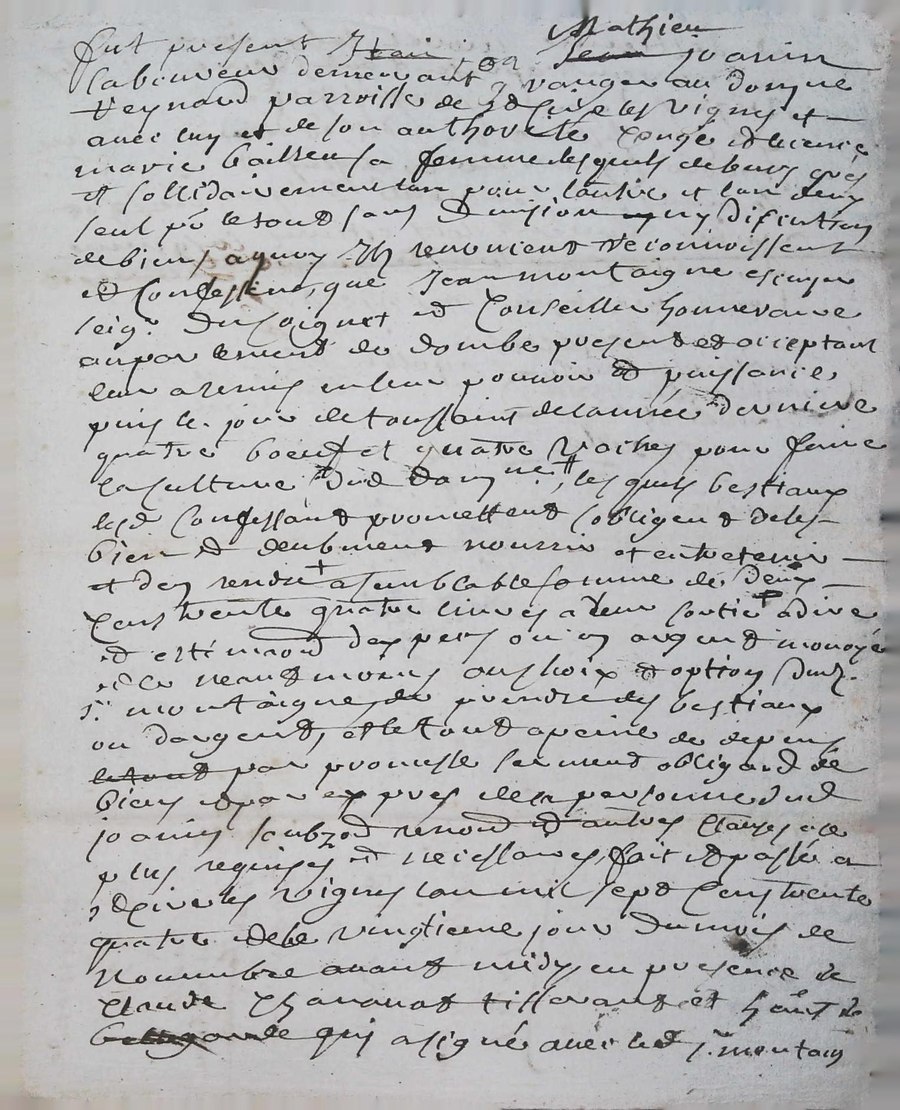 Mathieu
fut present Jean joanin
laboureur demeurant granger au domene
Reynard parroisse de st Cire les vignes et
avec luy et de son authorité congé et licence
marie sa femme lesquels de leurs grés
et sollidairement l'un pour l'autre et l'un deux
seul po. le tout sans division ny discution
de biens a quoy Ils renoncent reconnoissent
et confessent, que Jean montaigne escuyer
seigr. du soignet et Conseiller honneraire
au parlement de dombe present et acceptant
leur a remis en leur pouvoir et puissance,
puis le jour de toussaint de l'année derniere
quatre boeufs et quatre vaches pour faire
la culture dud domne., lesquels bestiaux
lesd confessant promettent s'obligent de les
bien et deubment nourrir et entretenir
et d'en rendre + a semblable somme de deux
cens trente quatre livres a leur sortie + a dire
et estimaon d'expers ou en argent monoyé
et ce neantmoins au choix et option dud.
sr. montaigne, de prendre des bestiaux
ou d'argent, et le tout a peine de depens
le tout par promesse serment obligaon de
biens et par expres de la personne dud
joanin soubz et autres clauses a ce
plus requises et necessaires, fait et passé a
st Cire les vignes l'an mil sept cens trente
quatre et le vingtieme jour du mois de
Novembre avant midy en presence de
Claude tisserant et de
qui a signé avec led sr. montaign